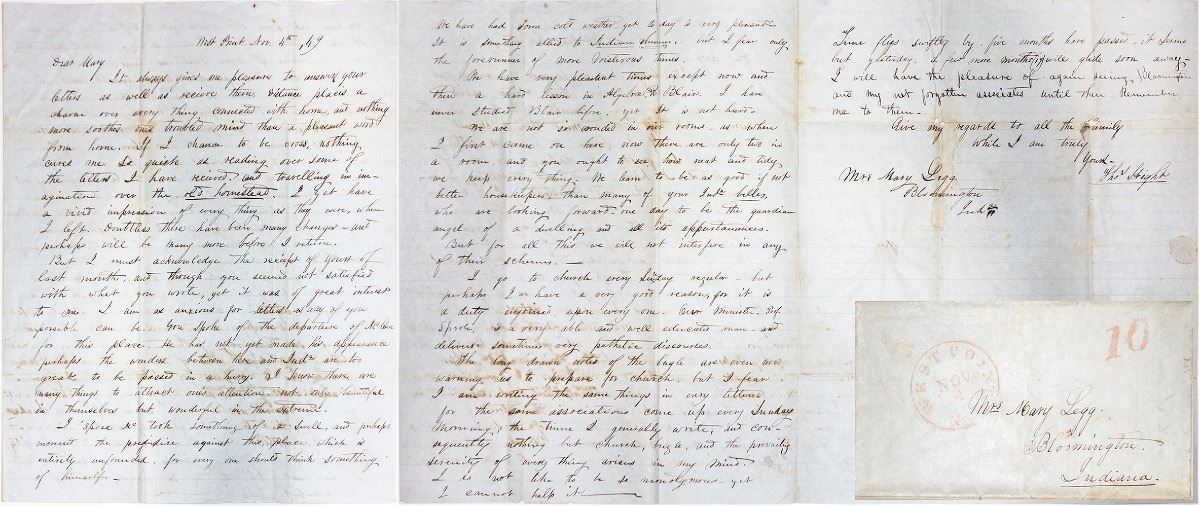 West Point Nov. 4th, 49
Dear Mary
It always gives me pleasure to answer your
letters as well as recieve them. Distance places a
charm over every thing connected with home, and nothing
more soothes one's troubled mind than a pleasant word
from home. If I chance to be cross, nothing
cures me so quick as reading over some of
the letters I have recieved, and travelling in im-
agination over the old homestead. I yet have
a vivid impression of every thing as they were, when
I left. Doubtless there have been many changes - and
perhaps will be many more before I return.
But I must acknowledge the reciept of yours of
last month, and though you seemed not satisfied
with what you wrote, yet it was of great interest
to me. I am as anxious for letters as any of you
possible can be. You spoke of the departure of
for this place. He has not yet made his appearance
perhaps the wonders between here and Inda are to
great, to be passed in a hurry. I know there are
many things to attract ones attention not only beautiful
in themselves but wonderful in the extreme.
I 'spose Mc took something of a swell, and perhaps
increased the prejudice against this place, which is
entirely unfounded, for every one should think something
of himself -
We have had some cold weather yet to day is very plesant -
It is something allied to Indian summer, but I fear only,
the forerunner of more boisterous times.
We have very pleasant times except now and
then a hard lesson in Algebra or Blair. I have
never studied Blair before, yet it is not hard -
We are not so crowded in our rooms, as when
I first came on here, now there are only two in
a room, and you ought to see how neat and tidy,
we keep every thing. We learn to be as good if not
better housekeepers, than many of your Inda belles,
who are looking forward one day to be the guardian
angel of a dwelling and all its appurtanances.
But for all this we will not interfere in any
of their schemes. -
I go to church every Sunday regular - but
perhaps I have a very good reason, for it is
a duty enjoined upon every one. Our Minister, Prof.
Sprole, is a very able and well educated man - and
delivers sometimes very pathetic discourses.
The long drawn notes of the bugle are even now
warning us to prepare for church, but I fear
I am writing the same things in every letter
for the same associations come up every Sunday
Morning, the time I generally write, and con-
sequently nothing but church, bugle, and the prevailing
serenity of every thing arises in my mind.
I do not like to be so monotonous - yet
I cannot help it -
Time flies swiftly by. five months have passed, it seems
but yesterday. a few more months, will glide soon away,
I will have the pleasure of again seeing Bloomington
and my not forgotten associates until then Remember
me to them -
Give my regards to all the Family
While I am truly
Yours -
Thos Wright
Mrs Mary Legg
Bloomington
Inda
10
WEST POINT
NOV
4
Mrs Mary Legg.
Bloomington.
Indiana.